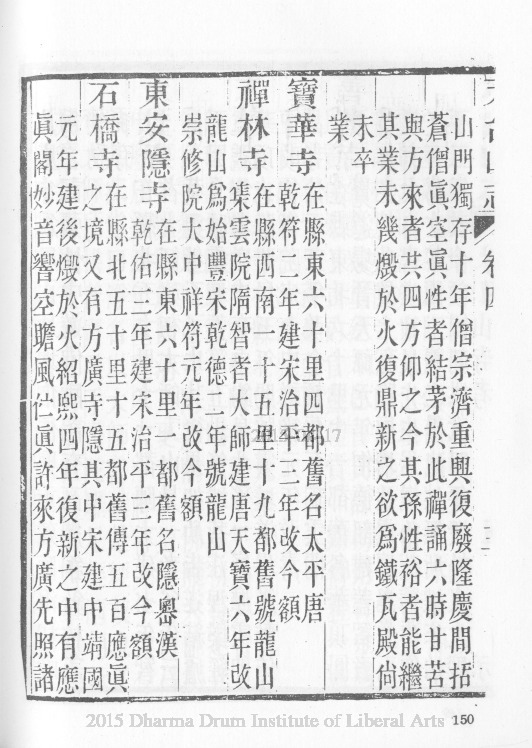 天台山志 卷四
山門獨存十年僧宗濟重興復廢隆慶間括
蒼僧眞空眞性者結茅於此禪誦六時甘苦
與方來者共四方仰之今其孫性裕者能繼
其業未幾燬於火復鼎新之欲爲鐵瓦殿尙
未卒
業
寶華寺 在縣東六十里四都舊名太平唐
乾符二年建宋治平三年改今額
禪林寺 在縣西南一十五里十九都舊號龍山
集雲院隋智者大師建唐天寶六年改
龍山爲始豐宋乾德二年號龍山
崇修院大中祥符元年改今額
東安隱寺 在縣東六十里一都舊名隱嶴漢
乾佑三年建宋治平三年改今額
石橋寺 在縣北五十里十五都舊傳五百應眞
之境又有方廣寺隱其中宋建中靖國
元年建後燬於火紹熙四年復新之中有應
眞閣妙音響空瞻風伫眞許來方廣先照諸
2015 Dharma Drum Institute of Liberal Arts
150